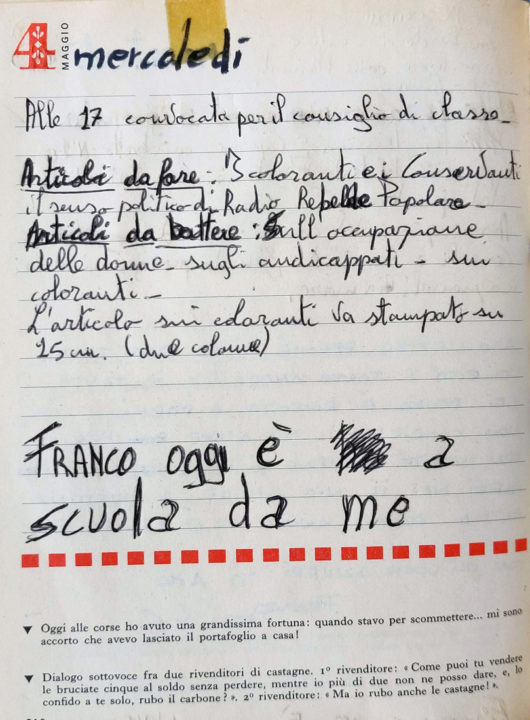 4 MAGGIO mercoledi
Alle 17 convocata per il consiglio di classe -
Articoli da fare: I coloranti e i Conservanti
il senso politico di Radio Rebelde Popolare -
Articoli da battere: Sull'occupazione
delle donne - sugli andicappati - sui
coloranti -
L'articolo sui coloranti va stampato su
25 cm. (due colonne)
FRANCO oggi è a
scuola da me
▼ Oggi alle corse ho avuto una grandissima fortuna: quando stavo per scommettere... mi sono
accorto che avevo lasciato il portafoglio a casa!
▼ Dialogo sottovoce fra due rivenditori di castagne. 1° rivenditore: « Come puoi tu vendere
le bruciate cinque al soldo senza perdere, mentre io più di due non ne posso dare, e, lo
confido a te solo, rubo il carbone? ». 2° rivenditore: « Ma io rubo anche le castagne! ».